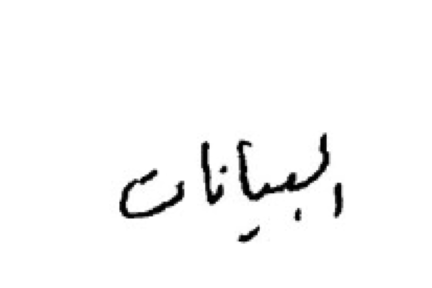 البيانات